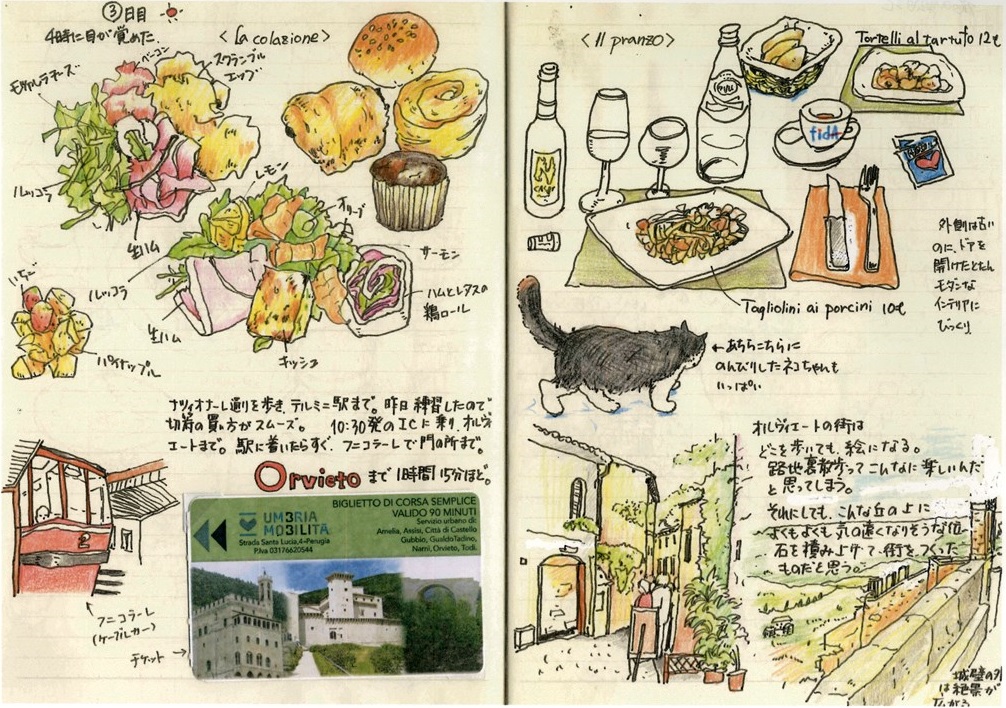 ③日目
4時に目が覚めた.
<La colazione>
ベーコン
スクランブル
エッグ
モッツァレラチーズ
ルッコラ
生ハム
レモン
オリーブ
サーモン
ハムとレタスの
鶏ロール
いちご
ルッコラ
生ハム
パイナップル
キッシュ
ナツィオナーレ通りを歩き、テルミニ駅まで。昨日練習したので
切符の買い方がスムーズ。 10:30発のICに乗り、オルヴィ
エートまで。駅に着いたらすぐ、フニコラーレで門の所まで。
Orvieto まで1時間15分ほど。
2
フニコラーレ
(ケーブルカー)
チケット→
BIGLIETTO DI CORSA SEMPLICE
VALIDO 90 MINUTI
Servizio urbano di:
Amelia, Assisi, Città di Castello
Gubbio, GualdoTadino,
Narni, Orvieto, Todi.
UM3RIA
MO3ILITÀ
Strada Santa Lucia,4-Perugia
P.Iva 03176620544
<Il pranzo>
Tortelli al tartufo 12€
fida
外側は古い
のに、ドアを
開けたとたん
モダンな
インテリアに
びっくり
Tagliolini ai porcini 10€
←あちらこちらに
のんびりしたネコちゃんも
いっぱい
オルヴィエートの街は
どこを歩いても、絵になる。
路地裏散歩ってこんなに楽しいんだ
と思ってしまう。
それにしても、こんな丘の上に
よくもよくも気の遠くなりそうな位
石を積み上げて、街をつくった
ものだと思う。
城壁の外
は絶景が
広がる